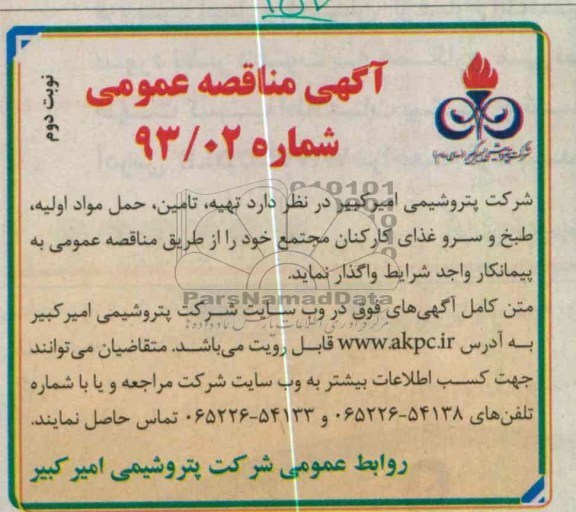 ۱۵۷
نوبت دوم
آگهی مناقصه عمومی
شماره ۹۳/۰۲
شرکت پتروشیمی امیرکبیر در نظر دارد تهیه، تامین، حمل مواد اولیه،
طبخ و سرو غذای کارکنان مجتمع خود را از طریق مناقصه عمومی به
پیمانکار واجد شرایط واگذار نماید.
ParsNamadData
متن کامل آگهی‌های فوق در وب سایت شرکت پتروشیمی امیرکبیر
به آدرس www.akpc.ir قابل رویت می‌باشد. متقاضیان می‌توانند
جهت کسب اطلاعات بیشتر به وب سایت شرکت مراجعه و یا با شماره
تلفن‌های ۵۴۱۳۸-۰۶۵۲۲۶ و ۵۴۱۳۳-۰۶۵۲۲۶ تماس حاصل نمایند.
روابط عمومی شرکت پتروشیمی امیرکبیر